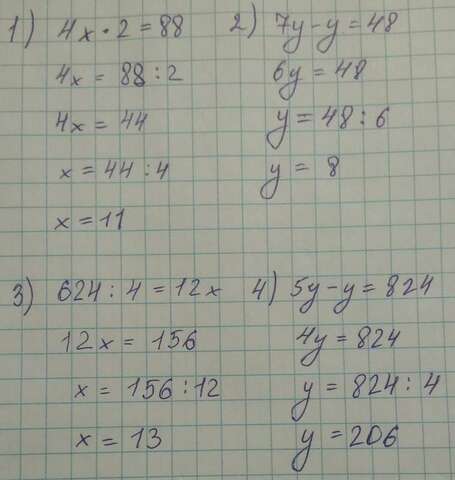 1) 4x · 2 = 88
4x = 88 : 2
4x = 44
x = 44 : 4
x = 11
2) 7y - y = 48
6y = 48
y = 48 : 6
y = 8
3) 624 : 4 = 12x
12x = 156
x = 156 : 12
x = 13
4) 5y - y = 824
4y = 824
y = 824 : 4
y = 206